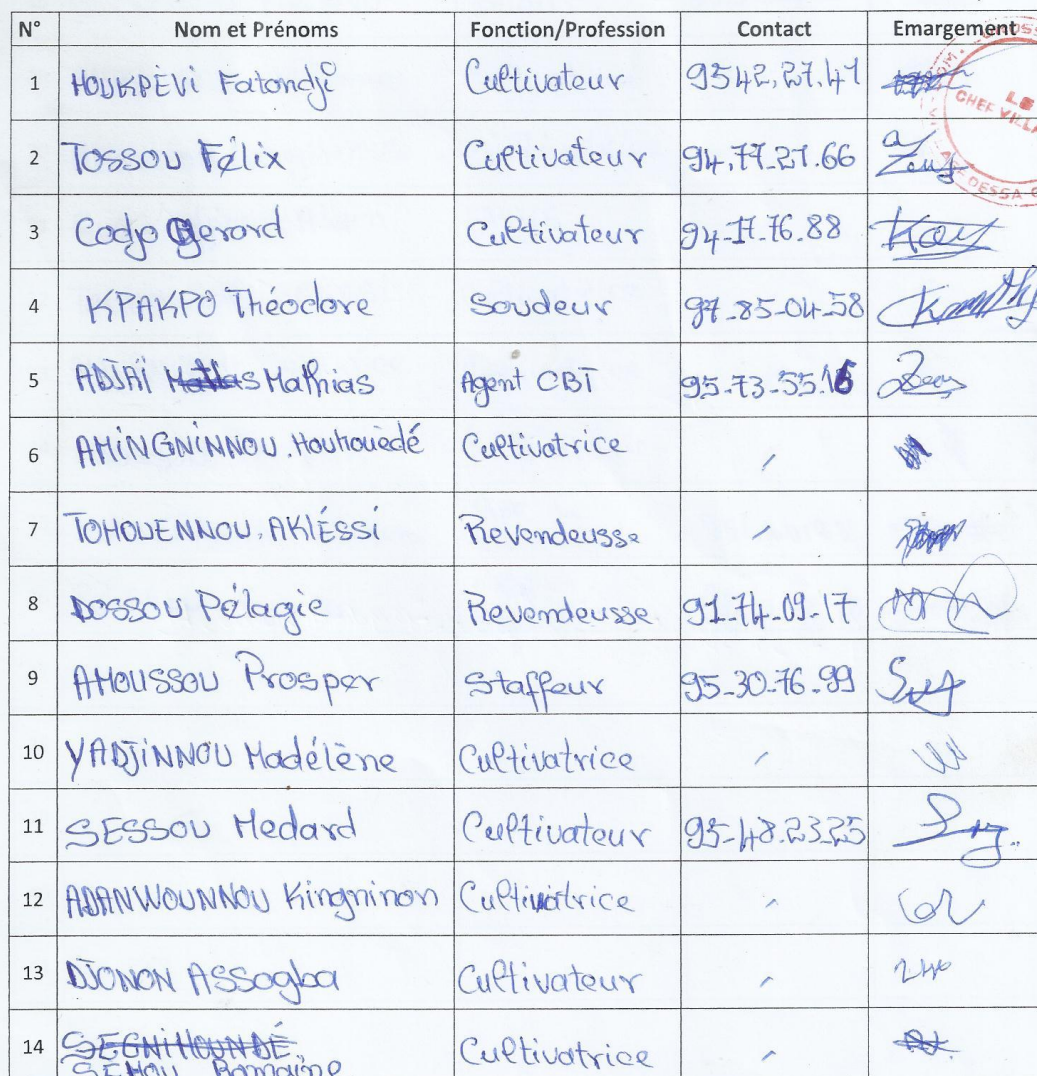 N° Nom et Prénoms Fonction/Profession Contact Emargement
1 HOUKPÈVI Fatondji Cultivateur 95 42.27.41
2 TOSSOU Félix Cultivateur 94.77.27.66
3 Codjo Gerard Cultivateur 94-17.76.88
4 KPAKPO Théodore Soudeur 97-85-04-58
5 ADJAÏ Mathias Agent CBT 95-73-55.16
6 AHINGNINNOU. Houhouèdé Cultivatrice
7 TOHOUENNOU. AKLÉSSI Revendeusse
8 DOSSOU Pélagie Revendeusse 91-74-09-17
9 AHOUSSOU Prosper Staffeur 95-30-76-99
10 YADJINNOU Madélène Cultivatrice
11 SESSOU Medard Cultivateur 95-48.23.25
12 ADANWOUNNOU Kingninon Cultivatrice
13 DJONON ASSogba Cultivateur
14 SEGNIHOUNDÉ Cultivatrice
SEHOU Romaine
LE
CHEF VILLA